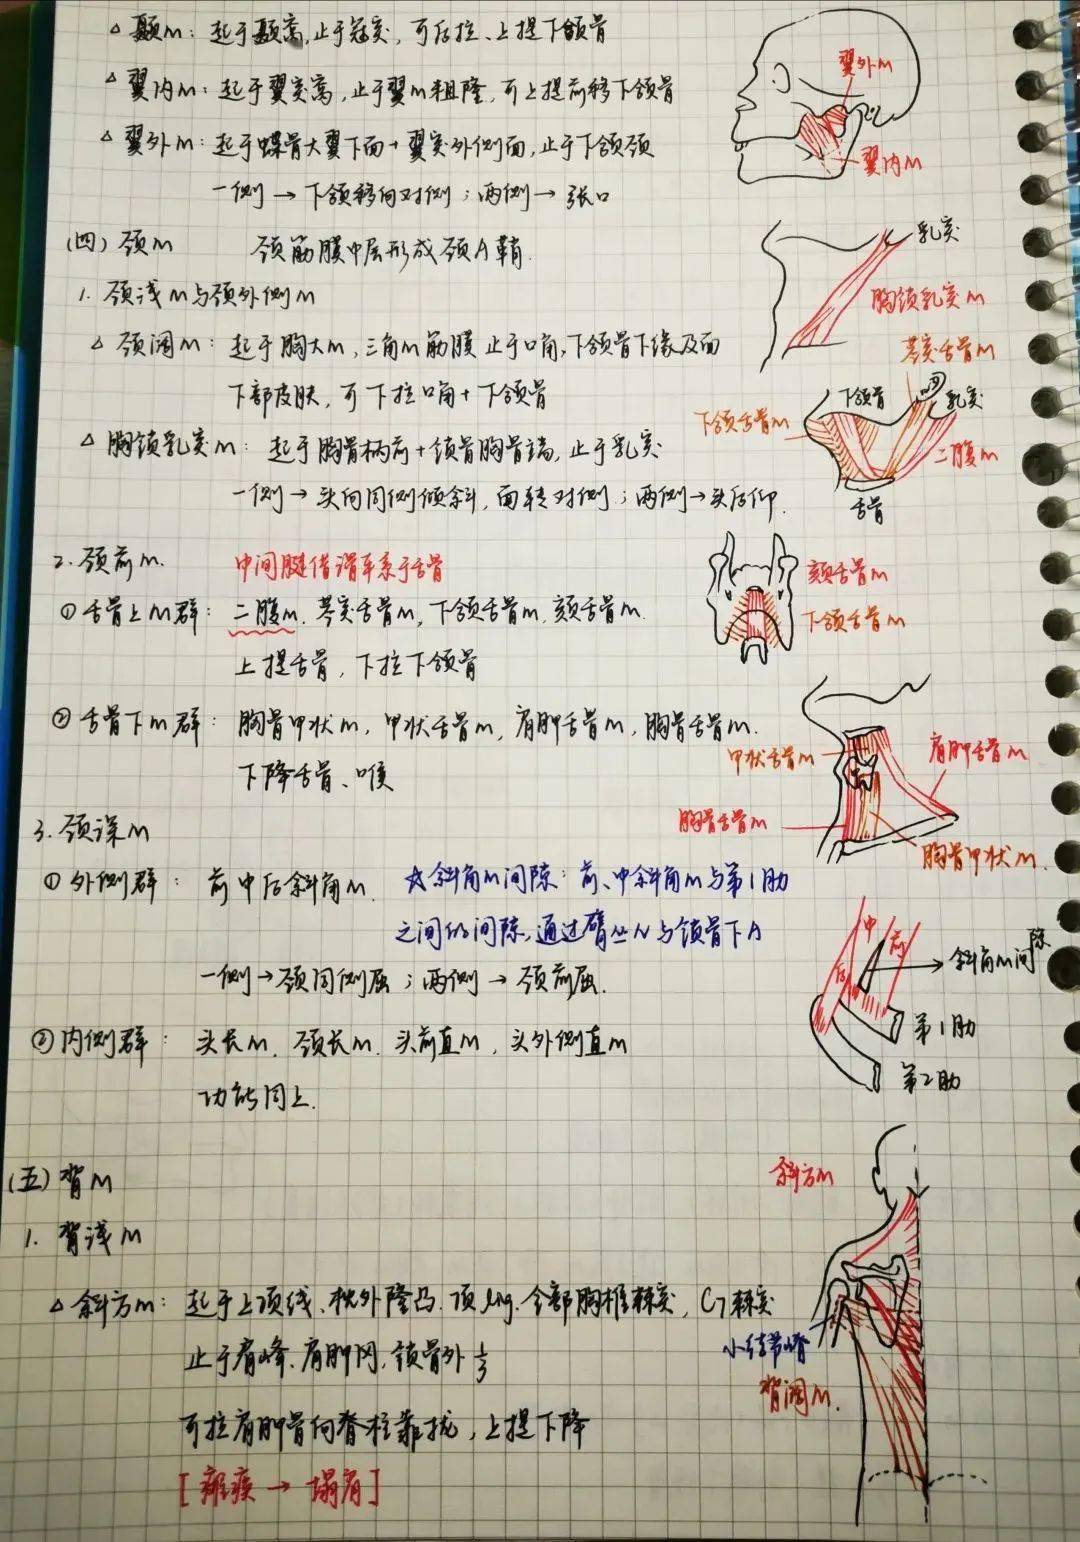 △ 颞m：起于颞窝，止于冠突，可后拉、上提下颌骨
△ 翼内m：起于翼突窝，止于翼m粗隆，可上提前移下颌骨
△ 翼外m：起于蝶骨大翼下面+翼突外侧面，止于下颌颈
一侧→下颌移向对侧；两侧→张口
翼外m
翼内m
(四) 颈m 颈筋膜中层形成颈A鞘
1. 颈浅m与颈外侧m
△ 颈阔m：起于胸大m，三角m筋膜 止于口角，下颌骨下缘及面
下部皮肤，可下拉口角+下颌骨
△ 胸锁乳突m：起于胸骨柄前+锁骨胸骨端，止于乳突
一侧→头向同侧倾斜，面转对侧；两侧→头后仰.
乳突
胸锁乳突m
茎突舌骨m
下颌骨
乳突
下颌舌骨m
二腹m
舌骨
2. 颈前m. 中间腱借滑车系于舌骨
① 舌骨上m群：二腹m. 茎突舌骨m, 下颌舌骨m, 颏舌骨m.
上提舌骨，下拉下颌骨
② 舌骨下m群：胸骨甲状m, 甲状舌骨m, 肩胛舌骨m, 胸骨舌骨m.
下降舌骨、喉
颏舌骨m
下颌舌骨m
甲状舌骨m
肩胛舌骨m
胸骨舌骨m
胸骨甲状m.
3. 颈深m
① 外侧群：前中后斜角m. ☆斜角m间隙：前、中斜角m与第1肋
之间的间隙，通过臂丛N与锁骨下A
一侧→颈同侧屈；两侧→颈前屈.
② 内侧群：头长m. 颈长m. 头前直m, 头外侧直m
功能同上.
中
前
后
斜角m间隙
第1肋
第2肋
(五) 背m
1. 背浅m
△ 斜方m：起于上项线、枕外隆凸. 项lig. 全部胸椎棘突, C7棘突
止于肩峰、肩胛冈, 锁骨外1/3
可拉肩胛骨向脊柱靠拢，上提下降
[瘫痪→塌肩]
斜方m
小结节嵴
背阔m.